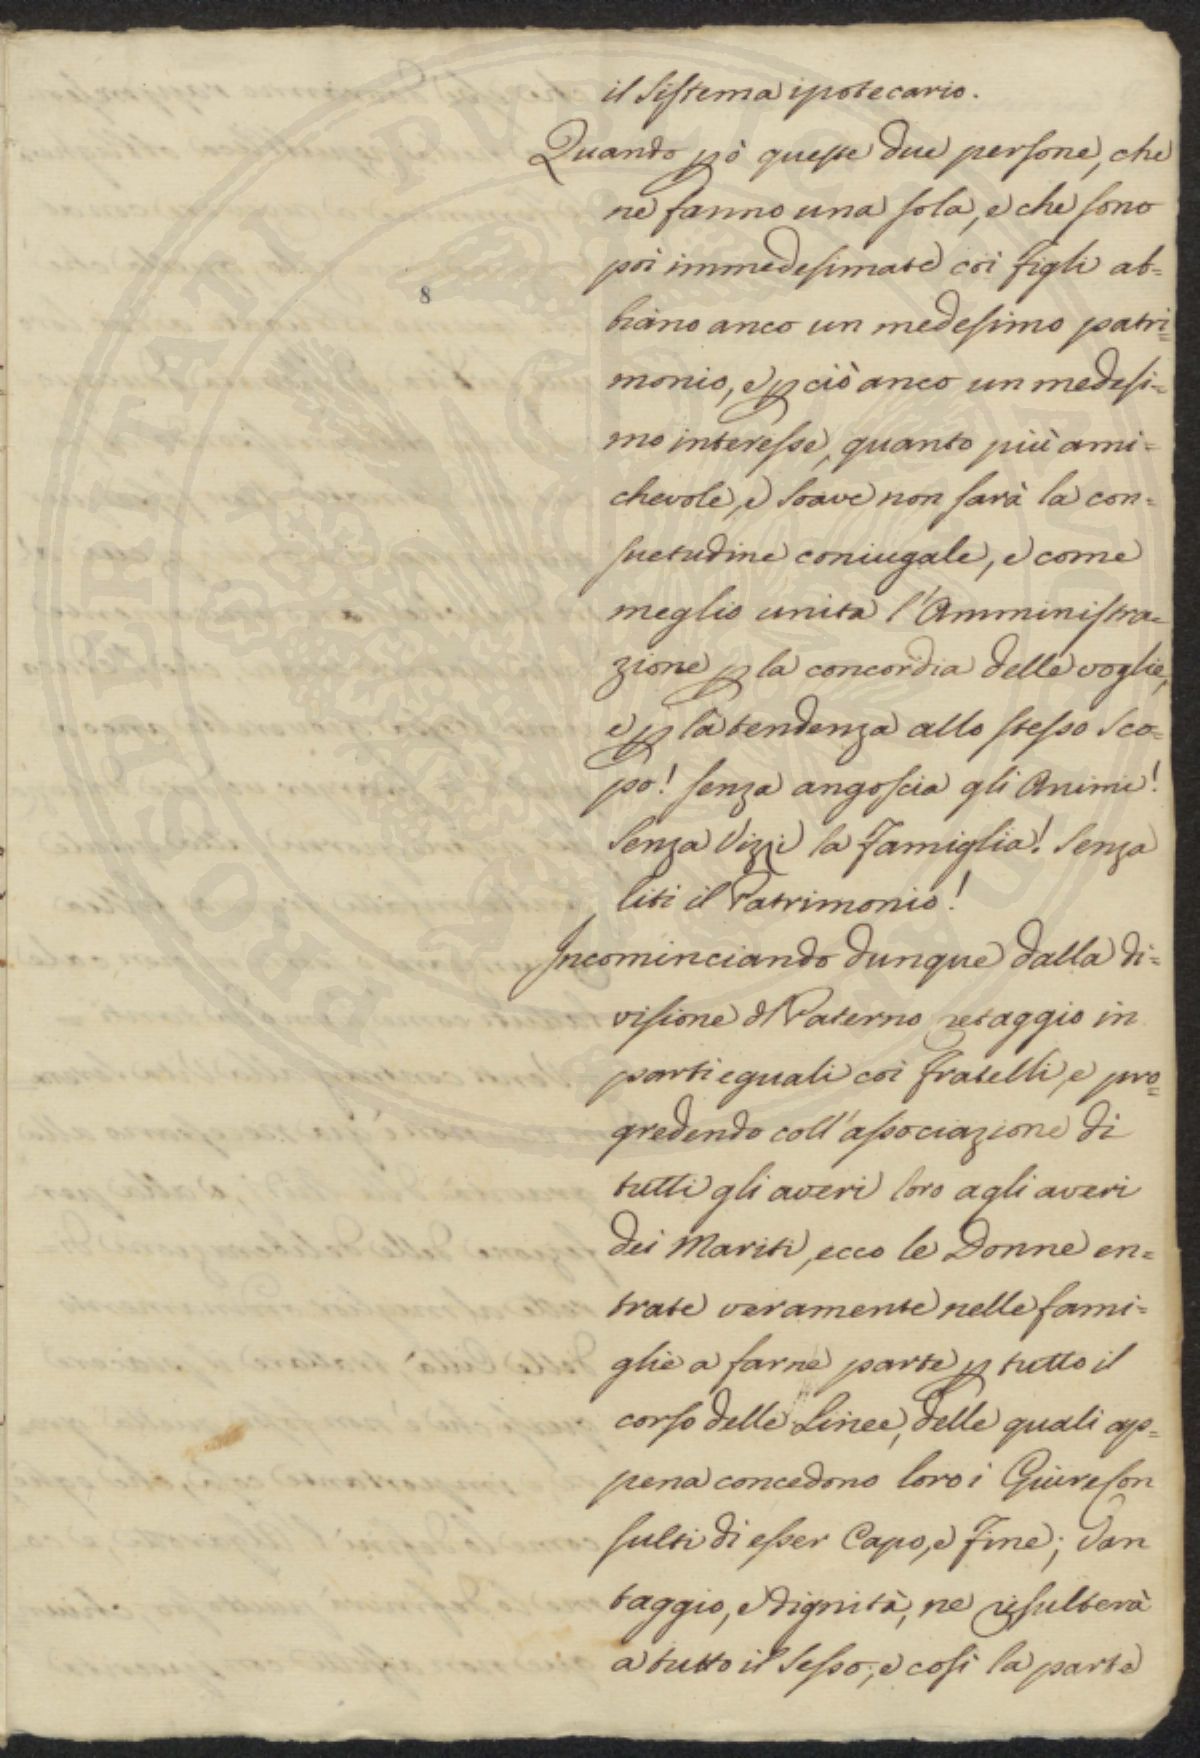 il Sistema ipotecario.
Quando però queste due persone, che
ne fanno una sola, e che sono
poi immedesimate coi figli ab=
biano anco un medesimo patri=
monio, e perciò anco un medesi=
mo interesse, quanto più ami=
chevole, e soave non sarà la con=
suetudine coniugale, e come
meglio unita l'Amministra=
zione per la concordia delle voglie,
e per la tendenza allo stesso sco=
po! senza angoscia gli Animi!
senza Vizzi la Famiglia! senza
liti il Patrimonio!
Incominciando dunque dalla di=
visione del Paterno retaggio in
parti eguali coi fratelli, e pro=
gredendo coll'associazione di
tutti gli averi loro agli averi
dei Mariti, ecco le Donne en=
trate veramente nelle fami=
glie a farne parte per tutto il
corso delle Linee, delle quali ap=
pena concedono loro i Giureson
sulti di esser Capo, e Fine; Van
taggio, e dignità, ne risulterà
a tutto il Sesso; e così la parte
8
PROSPERITATI PVBLICAE